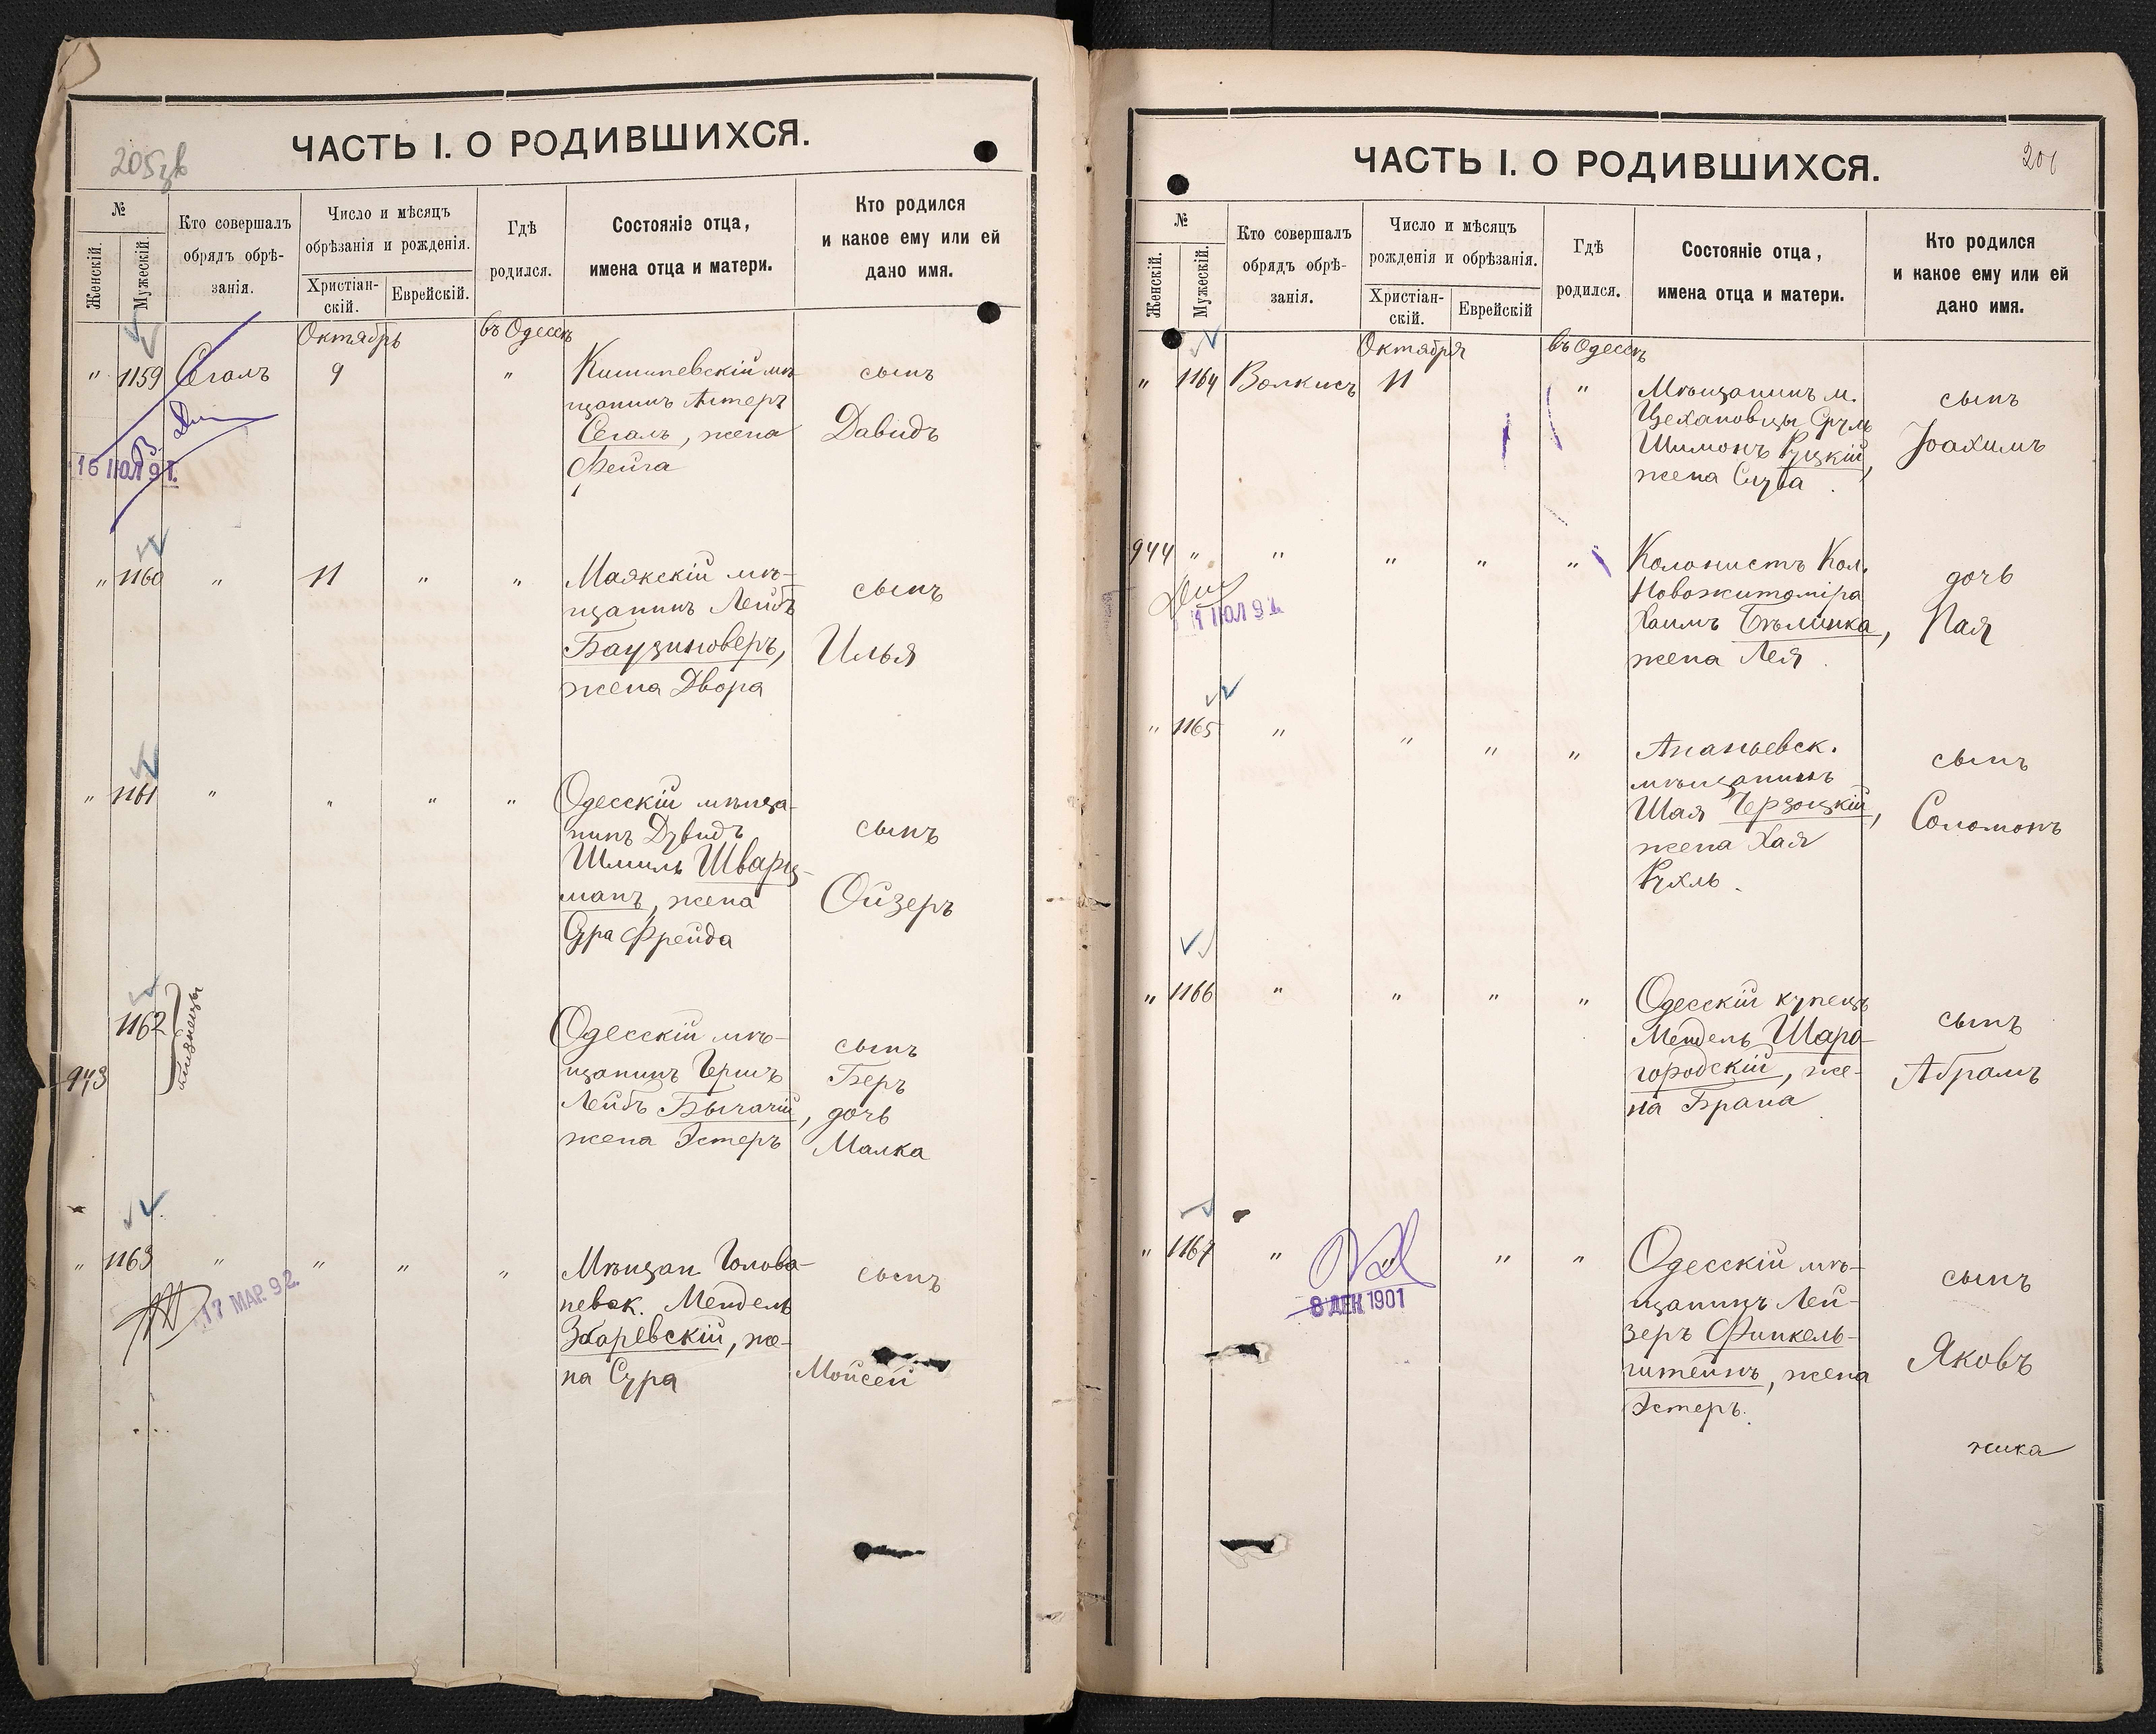 ЧАСТЬ I. О РОДИВШИХСЯ.
№
Женскій.
Мужескій.
Кто совершалъ
обрядъ обрѣ-
занія.
Число и мѣсяцъ
обрѣзанія и рожденія.
Христіан-
скій.
Еврейскій.
Гдѣ
родился.
Состояніе отца,
имена отца и матери.
Кто родился
и какое ему или ей
дано имя.
Октябрь
въ Одессѣ
" 1159 Сегалъ 9 "
Кишиневскій мѣ-
щанинъ
Сегалъ, жена
Фейга
сынъ
Давидъ
16 ІЮЛ 91.
" 1160 " 11 " "
Маякскій мѣ-
щанинъ Лейбъ
Баузиноверъ,
жена Двора
сынъ
Илья
" 1161 " " " "
Одесскій мѣща-
нинъ Дувидъ
Шмиль Шварц-
манъ, жена
Сура Фрейда
сынъ
Ойзеръ
1162
943
близнецы
Одесскій мѣ-
щанинъ Гершъ
Лейбъ Бычачій,
жена Эстеръ
сынъ
Беръ
дочь
Малка
" 1163 " " " "
Мѣщан. Голова-
невск. Мендель
Збаревскій, же-
на Сура
сынъ
Мойсей
17 МАР. 92.
ЧАСТЬ I. О РОДИВШИХСЯ.
№
Женскій.
Мужескій.
Кто совершалъ
обрядъ обрѣ-
занія.
Число и мѣсяцъ
рожденія и обрѣзанія.
Христіан-
скій.
Еврейскій
Гдѣ
родился.
Состояніе отца,
имена отца и матери.
Кто родился
и какое ему или ей
дано имя.
Октября
въ Одессѣ
" 1164 Волкисъ 11 "
Мѣщанинъ м.
Цехановцы Сруль
Шимонъ Руцкій,
жена Слува.
сынъ
Іоахимъ
944 " " " " "
Колонистъ Кол.
Новожитоміра
Хаимъ Бѣлинка,
жена Лея.
дочь
Пая
" 1165 " " " "
Ананьевск.
мѣщанинъ
Шая,
жена Хая
Рухль.
сынъ
Соломонъ
" 1166 " " " "
Одесскій купецъ
Мендель Шаро-
городскій, же-
на Брана
сынъ
Абрамъ
" 1167 " " " "
Одесскій мѣ-
щанинъ Лей-
зеръ Финкель-
штейнъ, жена
Эстеръ.
сынъ
Яковъ
8 ДЕК 1901